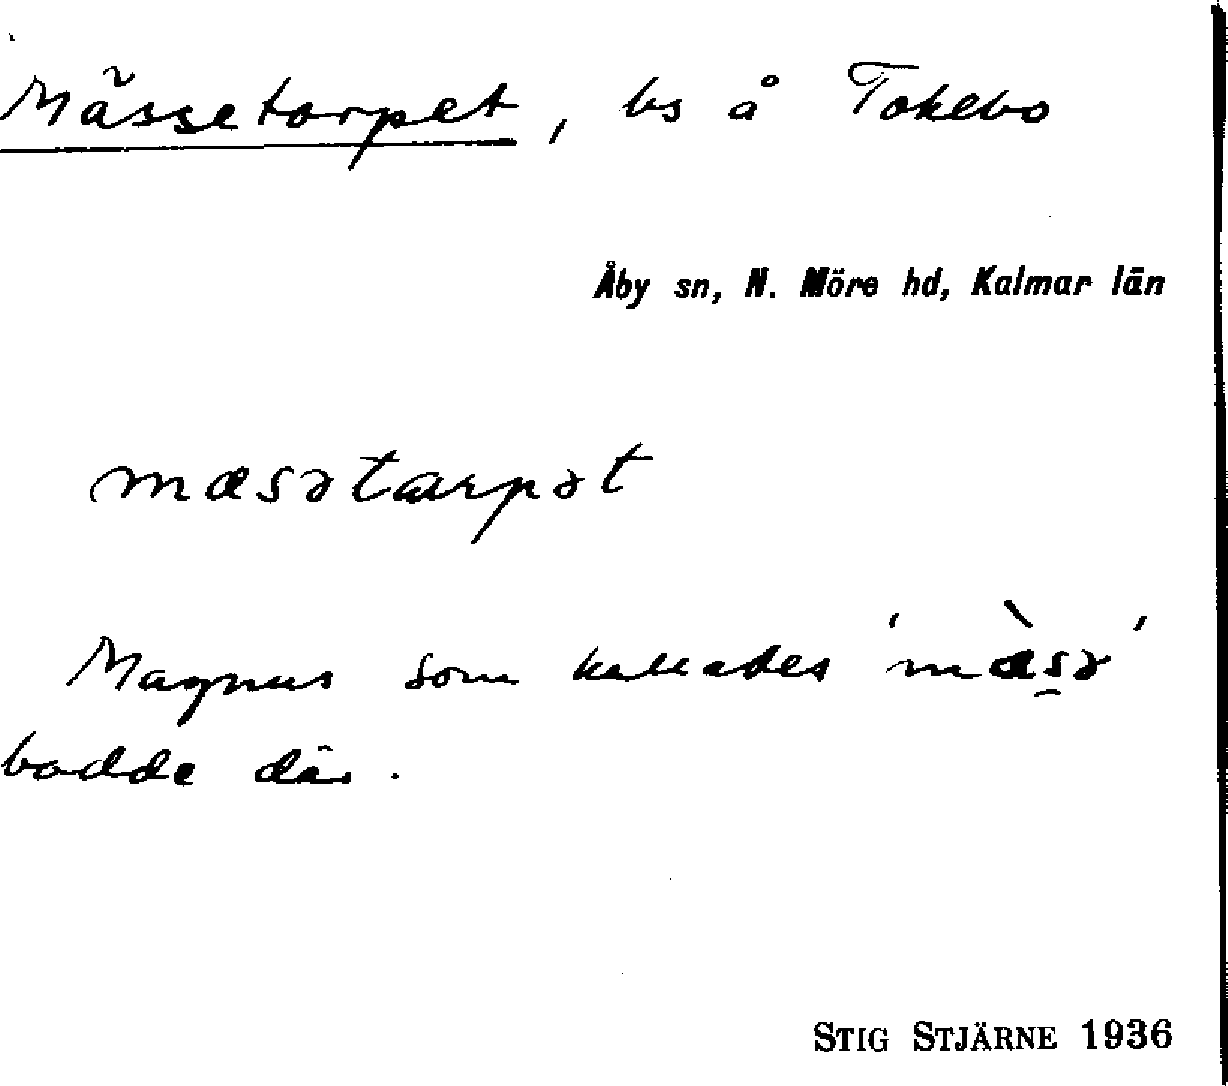 Mässetorpet, bs å Tokebo
Åby sn, N. Möre hd, Kalmar län
mæsətarpət
Magnus som kallades 'mæ̀sə'
bodde där.
STIG STJÄRNE 1936